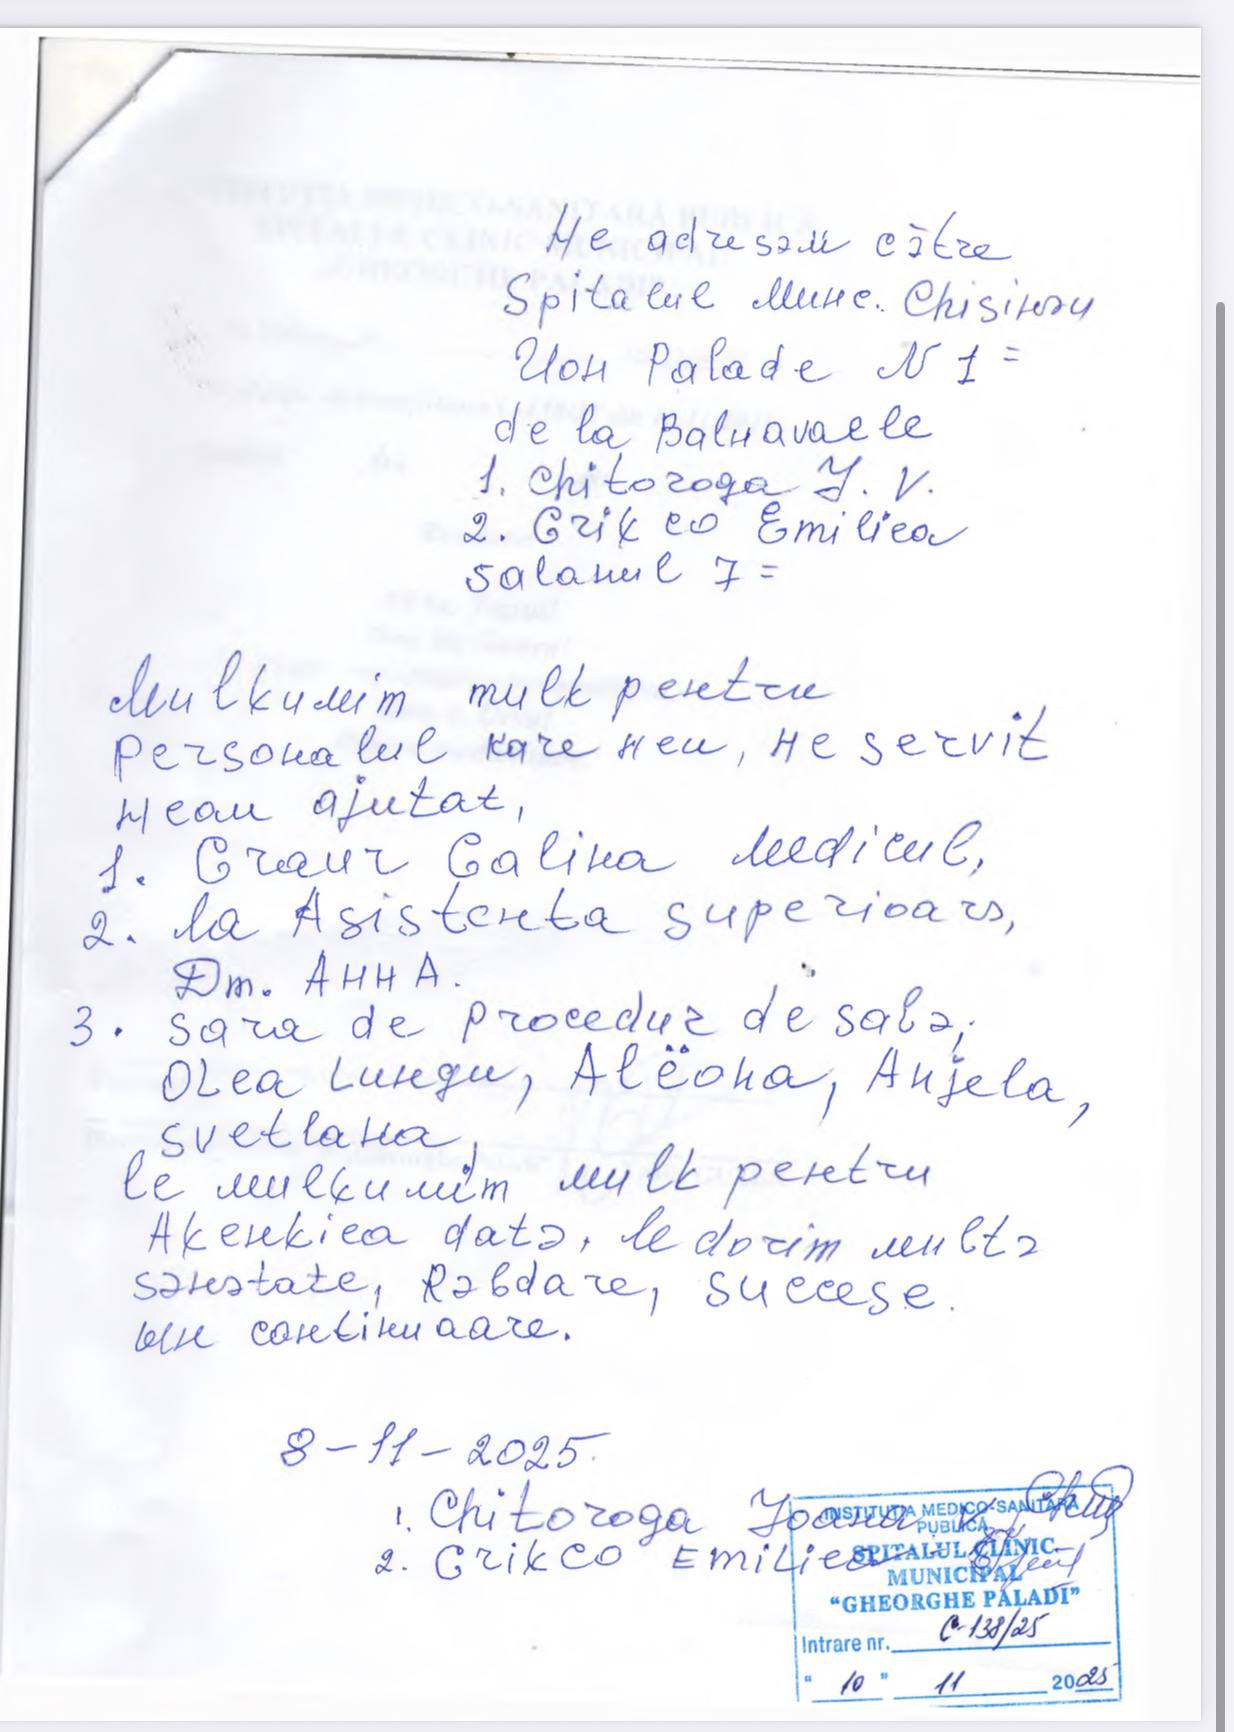 Не adresăm către
Spitalul Мунс. Chișinəu
Ион Palade N 1=
de la Балнаvаеle
1. Chitoroga I. V.
2. Grikco Emiliea
Salaнul 7=
Mulкumim mulк pентru
Personalul кare неu, не servit
неau ajutat,
1. Graur Galina Medicul,
2. la Asistента superioarə,
Dm. АННА.
3. Sara de procedur de sabə,
Olea Lungu, Alëona, Anjela,
Svetlana,
le mulкumim mulк pентru
Aкенкiea datə, le dorim multə
sənətate, Rəbdare, succese
ын continuaare.
8-11-2025.
1. Chitoroga Ioana V.
2. Grikco Emiliea
INSTITUȚIA MEDICO-SANITARĂ
PUBLICĂ
SPITALUL CLINIC
MUNICIPAL
"GHEORGHE PALADI"
Intrare nr. C-138/25
"10" 11 2025